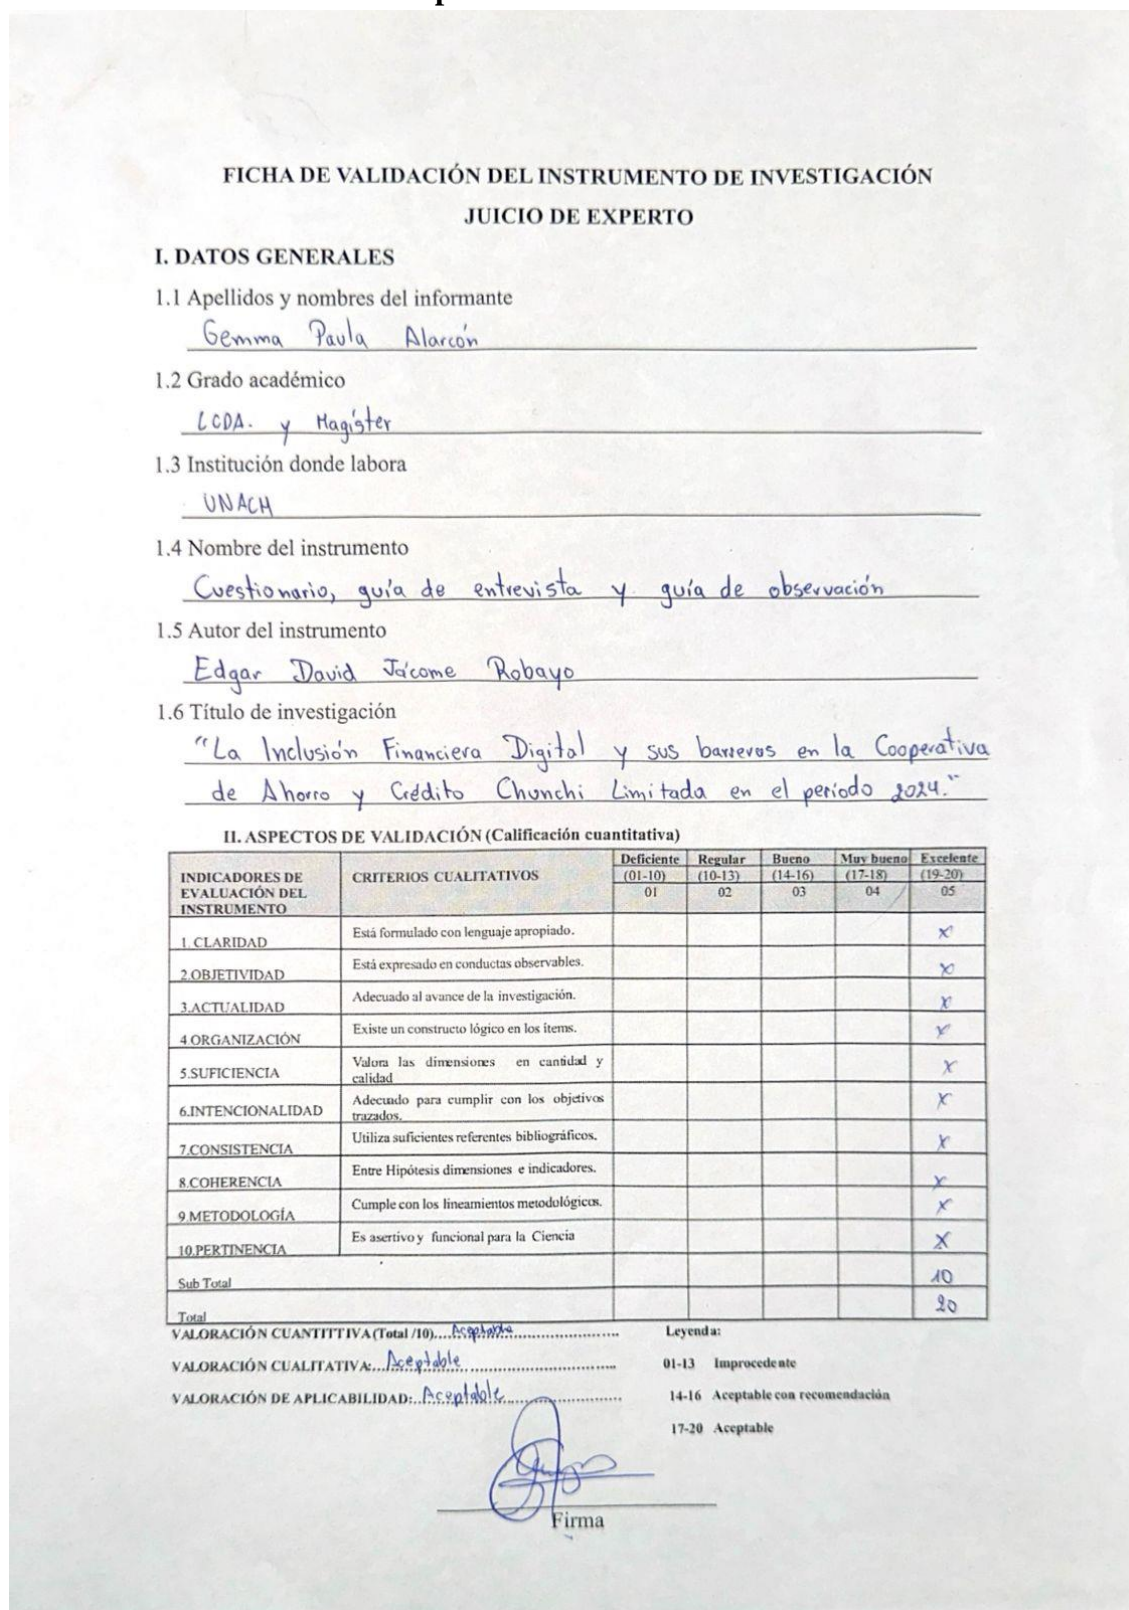 FICHA DE VALIDACIÓN DEL INSTRUMENTO DE INVESTIGACIÓN
JUICIO DE EXPERTO
I. DATOS GENERALES
1.1 Apellidos y nombres del informante
Gemma Paula Alarcón
1.2 Grado académico
LCDA. y Magíster
1.3 Institución donde labora
UNACH
1.4 Nombre del instrumento
Cuestionario, guía de entrevista y guía de observación
1.5 Autor del instrumento
Edgar David Jácome Robayo
1.6 Título de investigación
"La Inclusión Financiera Digital y sus barreras en la Cooperativa
de Ahorro y Crédito Chunchi Limitada en el período 2024."
II. ASPECTOS DE VALIDACIÓN (Calificación cuantitativa)
INDICADORES DE EVALUACIÓN DEL INSTRUMENTO CRITERIOS CUALITATIVOS Deficiente Regular Bueno Muy bueno Excelente
(01-10) (10-13) (14-16) (17-18) (19-20)
01 02 03 04 05
1. CLARIDAD Está formulado con lenguaje apropiado. X
2.OBJETIVIDAD Está expresado en conductas observables. X
3.ACTUALIDAD Adecuado al avance de la investigación. X
4 ORGANIZACIÓN Existe un constructo lógico en los ítems. X
5.SUFICIENCIA Valora las dimensiones en cantidad y calidad X
6.INTENCIONALIDAD Adecuado para cumplir con los objetivos trazados. X
7.CONSISTENCIA Utiliza suficientes referentes bibliográficos. X
8.COHERENCIA Entre Hipótesis dimensiones e indicadores. X
9.METODOLOGÍA Cumple con los lineamientos metodológicos. X
10.PERTINENCIA Es asertivo y funcional para la Ciencia X
Sub Total 10
Total 20
VALORACIÓN CUANTITTIVA (Total /10)....Aceptable.......................... Leyenda:
VALORACIÓN CUALITATIVA:...Aceptable.................................. 01-13 Improcedente
VALORACIÓN DE APLICABILIDAD:..Aceptable........................... 14-16 Aceptable con recomendación
17-20 Aceptable
Firma